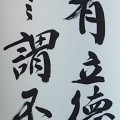 有立德
之謂不